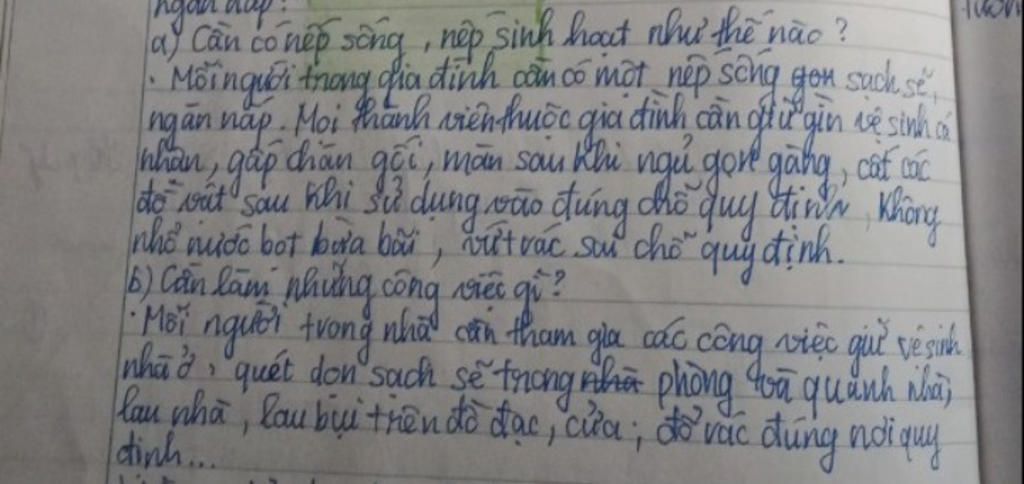 ngăn nắp?
a) Cần có nếp sống, nếp sinh hoạt như thế nào?
. Mỗi người trong gia đình cần có một nếp sống gọn sạch sẽ,
ngăn nắp. Mọi thành viên thuộc gia đình cần giữ gìn vệ sinh cá
nhân, gấp chăn gối, màn sau khi ngủ gọn gàng, cất các
đồ vật sau khi sử dụng vào đúng chỗ quy định, không
nhổ nước bọt bừa bãi, vứt rác sai chỗ quy định.
b) Cần làm những công việc gì?
. Mỗi người trong nhà cần tham gia các công việc giữ vệ sinh
nhà ở, quét dọn sạch sẽ trong nhà phòng và quanh nhà;
lau nhà, lau bụi trên đồ đạc, cửa; đổ rác đúng nơi quy
định...